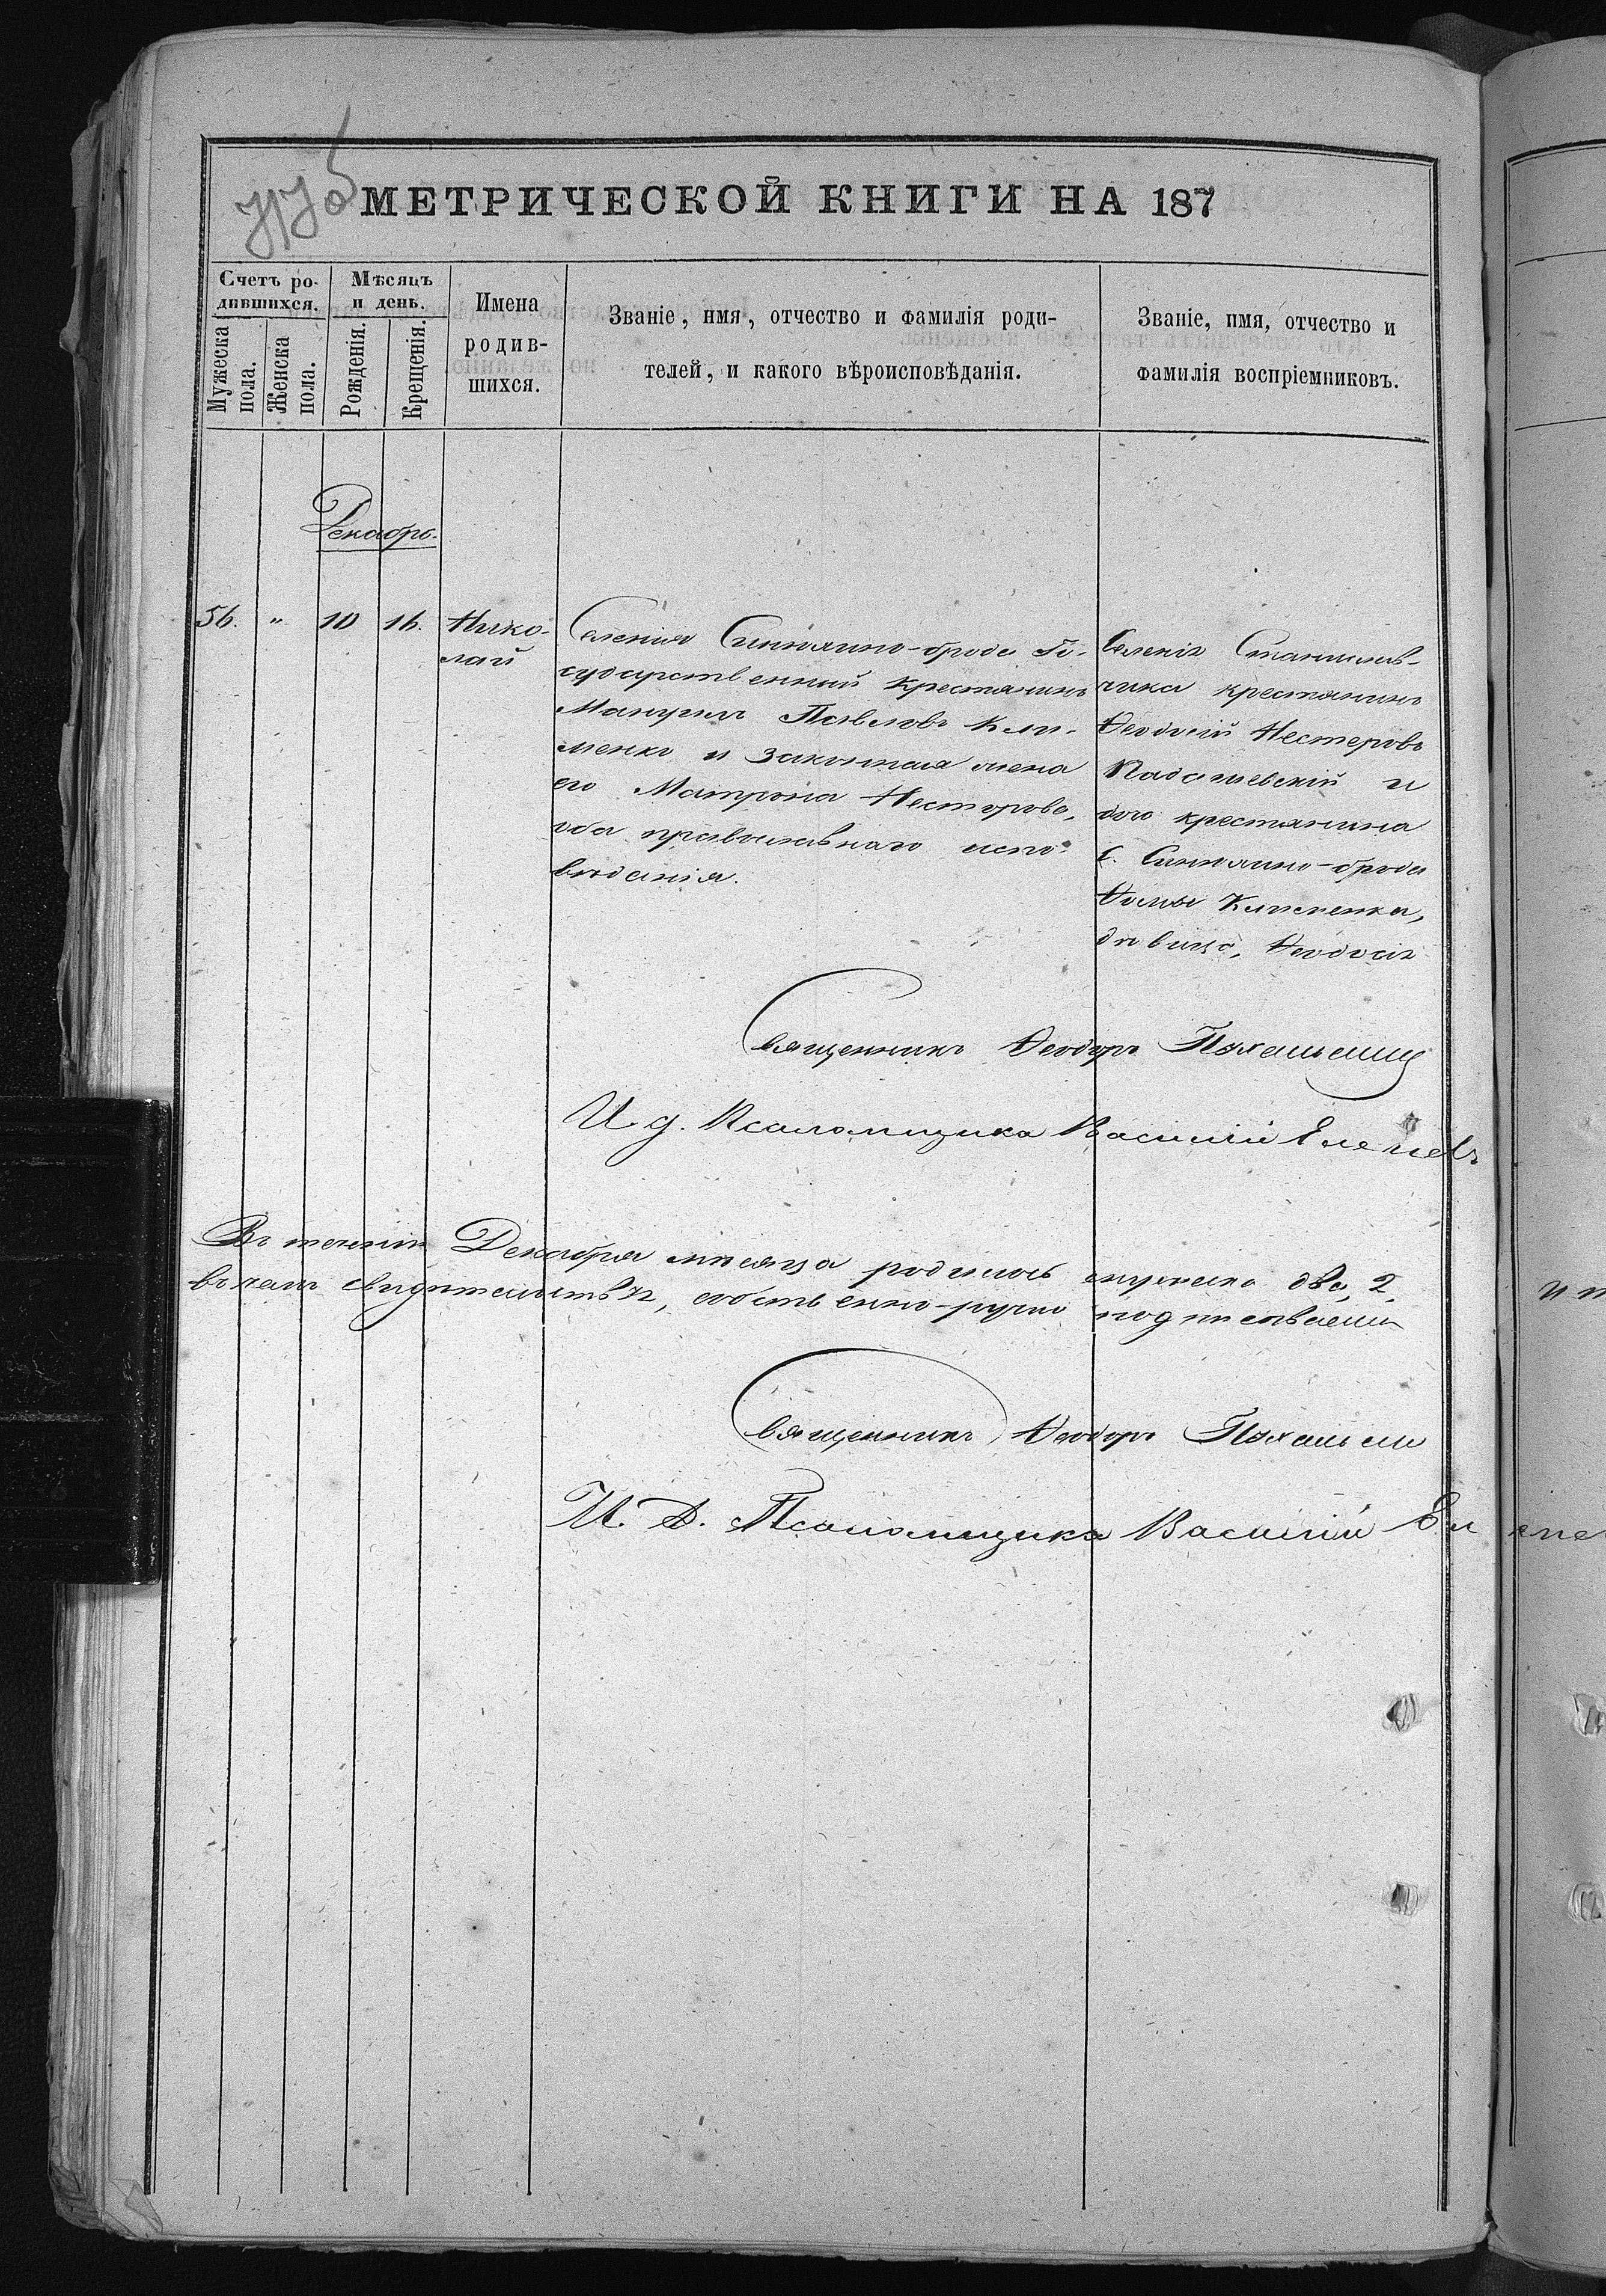 МЕТРИЧЕСКОЙ КНИГИ НА 187
Счетъ ро-
дившихся.
Мужеска пола.
Женска пола.
Мѣсяцъ
и день.
Рожденія.
Крещенія.
Имена
родив-
шихся.
Званіе, имя, отчество и фамилія роди-
телей, и какого вѣроисповѣданія.
Званіе, имя, отчество и
фамилія воспріемниковъ.
Декабрь.
56. " 10 16. Нико-
лай
Селенія Синюхино-брода Го-
сударственный крестьянинъ
Мануилъ Павловъ Кли-
менко и законная жена
его Матрона Несторова,
оба православнаго испо-
вѣданія.
Селенія
крестьянинъ
Ѳеодосій Нестеровъ
и
дочь крестьянина
с. Синюхино-брода
Ѳомы Клименка,
дѣвица, Ѳеодосія
Священникъ Ѳеодоръ
И д. Псаломщика Василій
Въ теченіи Декабря мѣсяца родилось мужеска два, 2,
въ чемъ свидѣтельствѣ, собственно-ручно подписываемъ
Священникъ Ѳеодоръ
И. Д. Псаломщика Василій